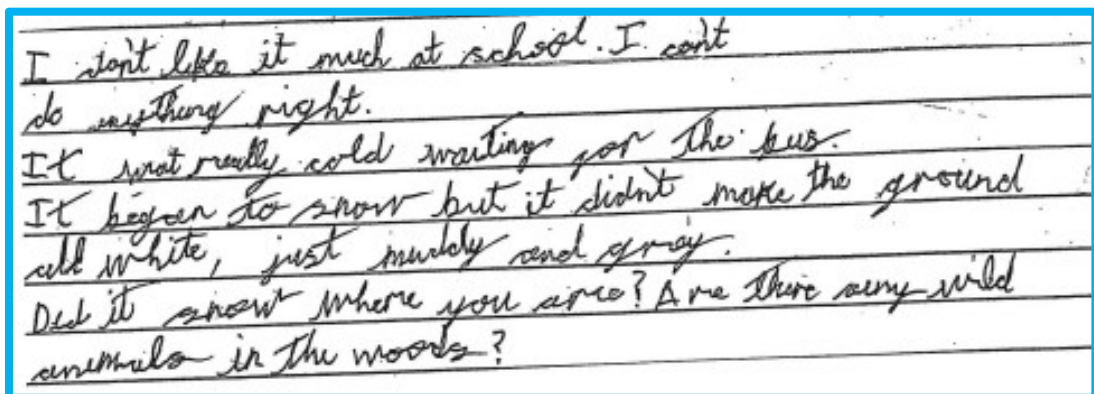 I don't like it much at school. I can't
do anything right.
It was really cold waiting for the bus.
It began to snow but it didn't make the ground
all white, just muddy and grey.
Did it snow where you are? Are there any wild
animals in the woods?